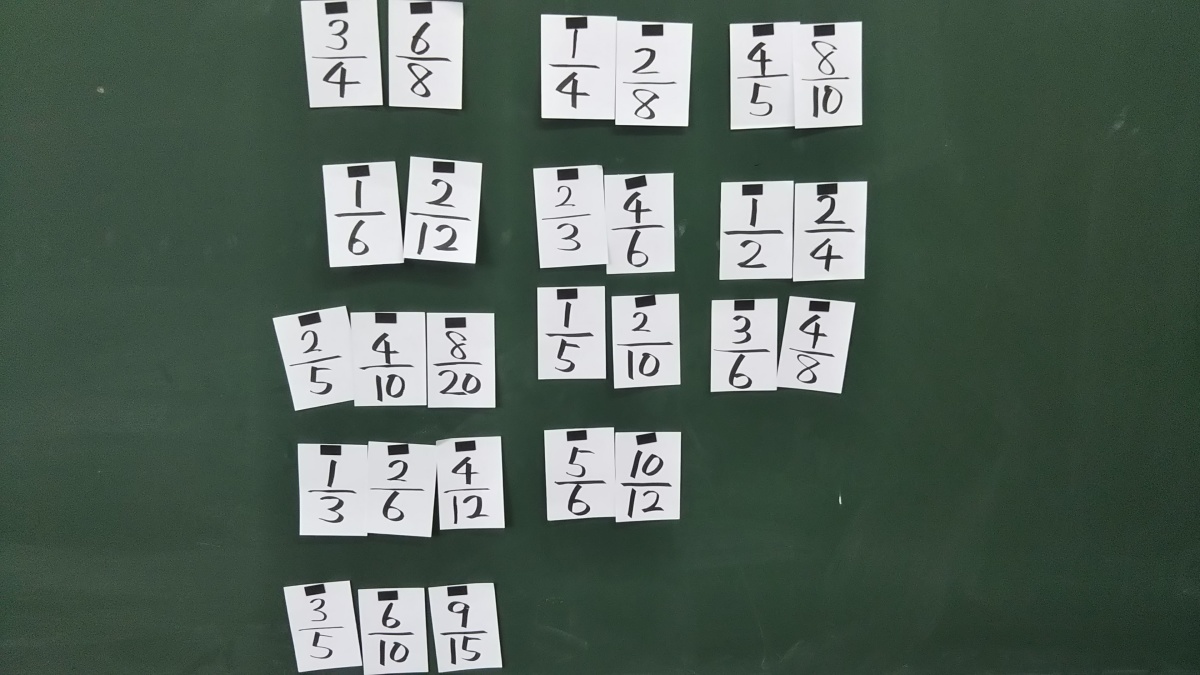 3/4 6/8 1/4 2/8 4/5 8/10
1/6 2/12 2/3 4/6 1/2 2/4
2/5 4/10 8/20 1/5 2/10 3/6 4/8
1/3 2/6 4/12 5/6 10/12
3/5 6/10 9/15